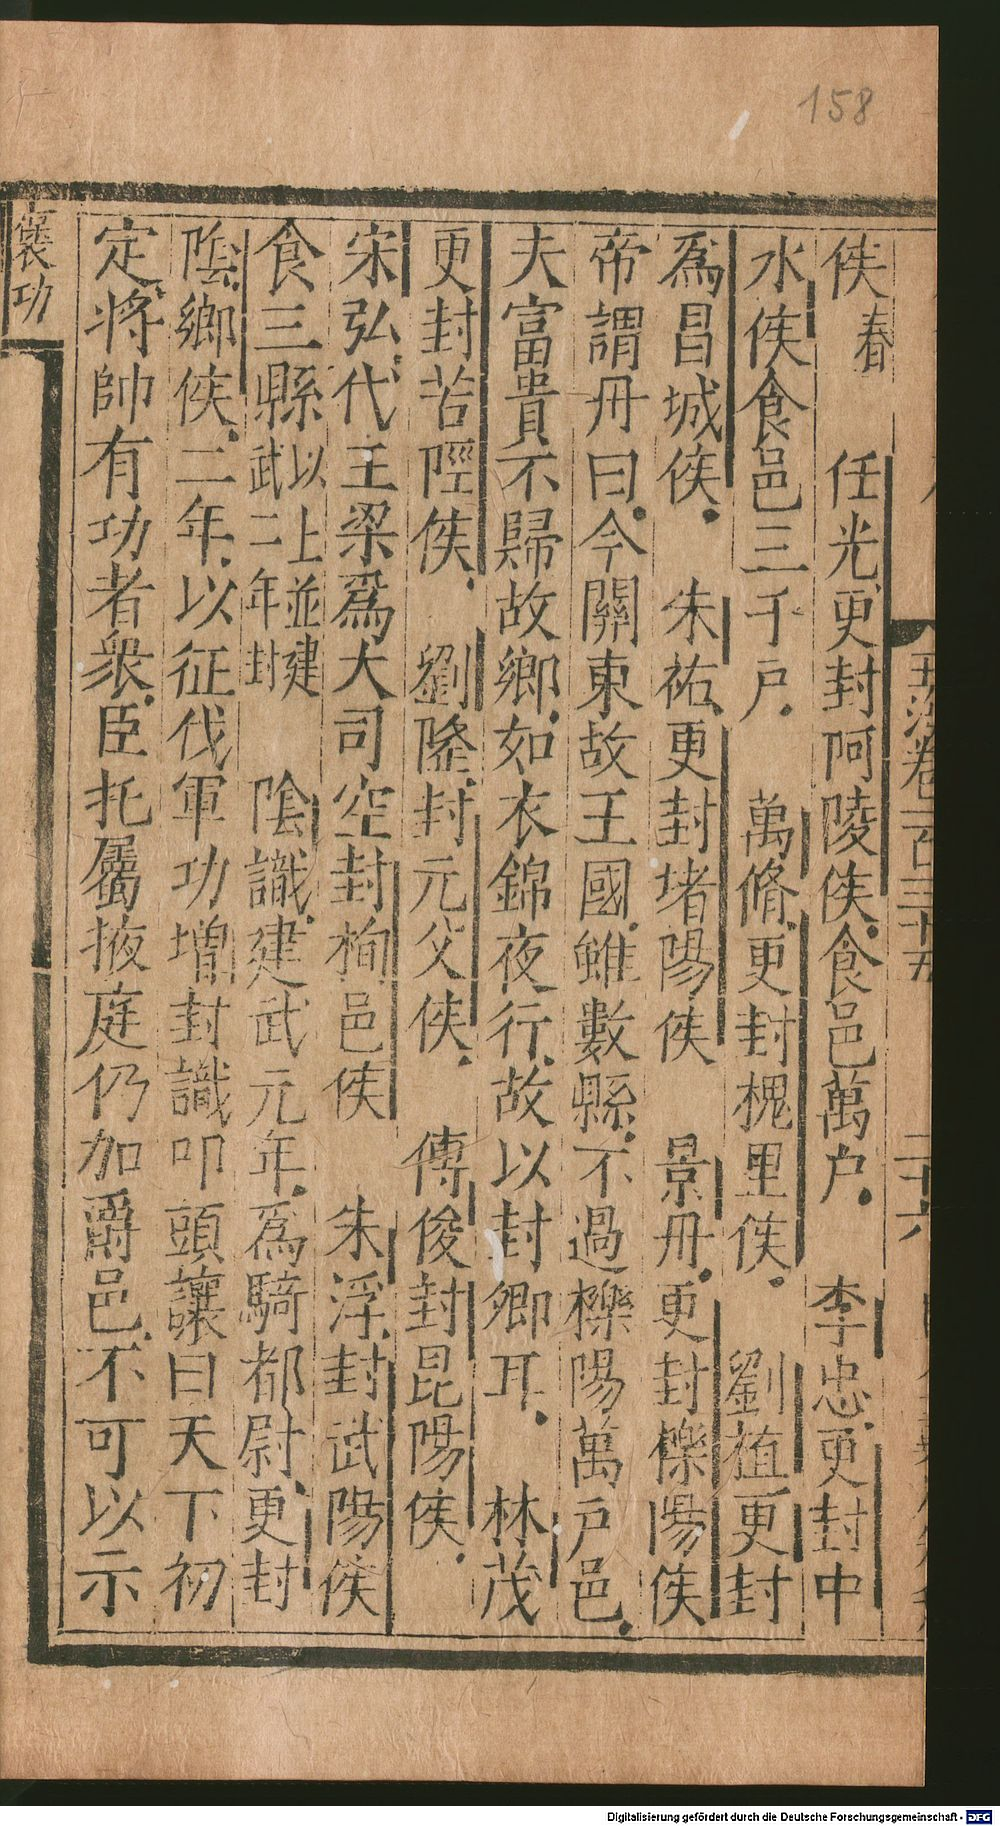 158
侯 春 任光更封阿陵侯食邑萬户 李忠更封中
水侯食邑三千戸 萬脩更封槐里侯 劉植更封
爲昌城侯 朱祐更封堵陽侯 景丹更封櫟陽侯
帝謂丹曰今關東故王國雖數縣不過櫟陽萬戸邑
夫富貴不歸故鄉如衣錦夜行故以封卿耳 林茂
更封苦陘侯 劉隆封元父侯 傅俊封昆陽侯
宋弘代王梁爲大司空封栒邑侯 朱浮封武陽侯
食三縣以上並建武二年封 陰識建武元年爲騎都尉更封
陰鄉侯二年以征伐軍功增封識叩頭讓曰天下初
定將帥有功者衆臣托屬掖庭仍加爵邑不可以示
褒功
卷一百三十五
二十六
Digitalisierung gefördert durch die Deutsche Forschungsgemeinschaft - DFG